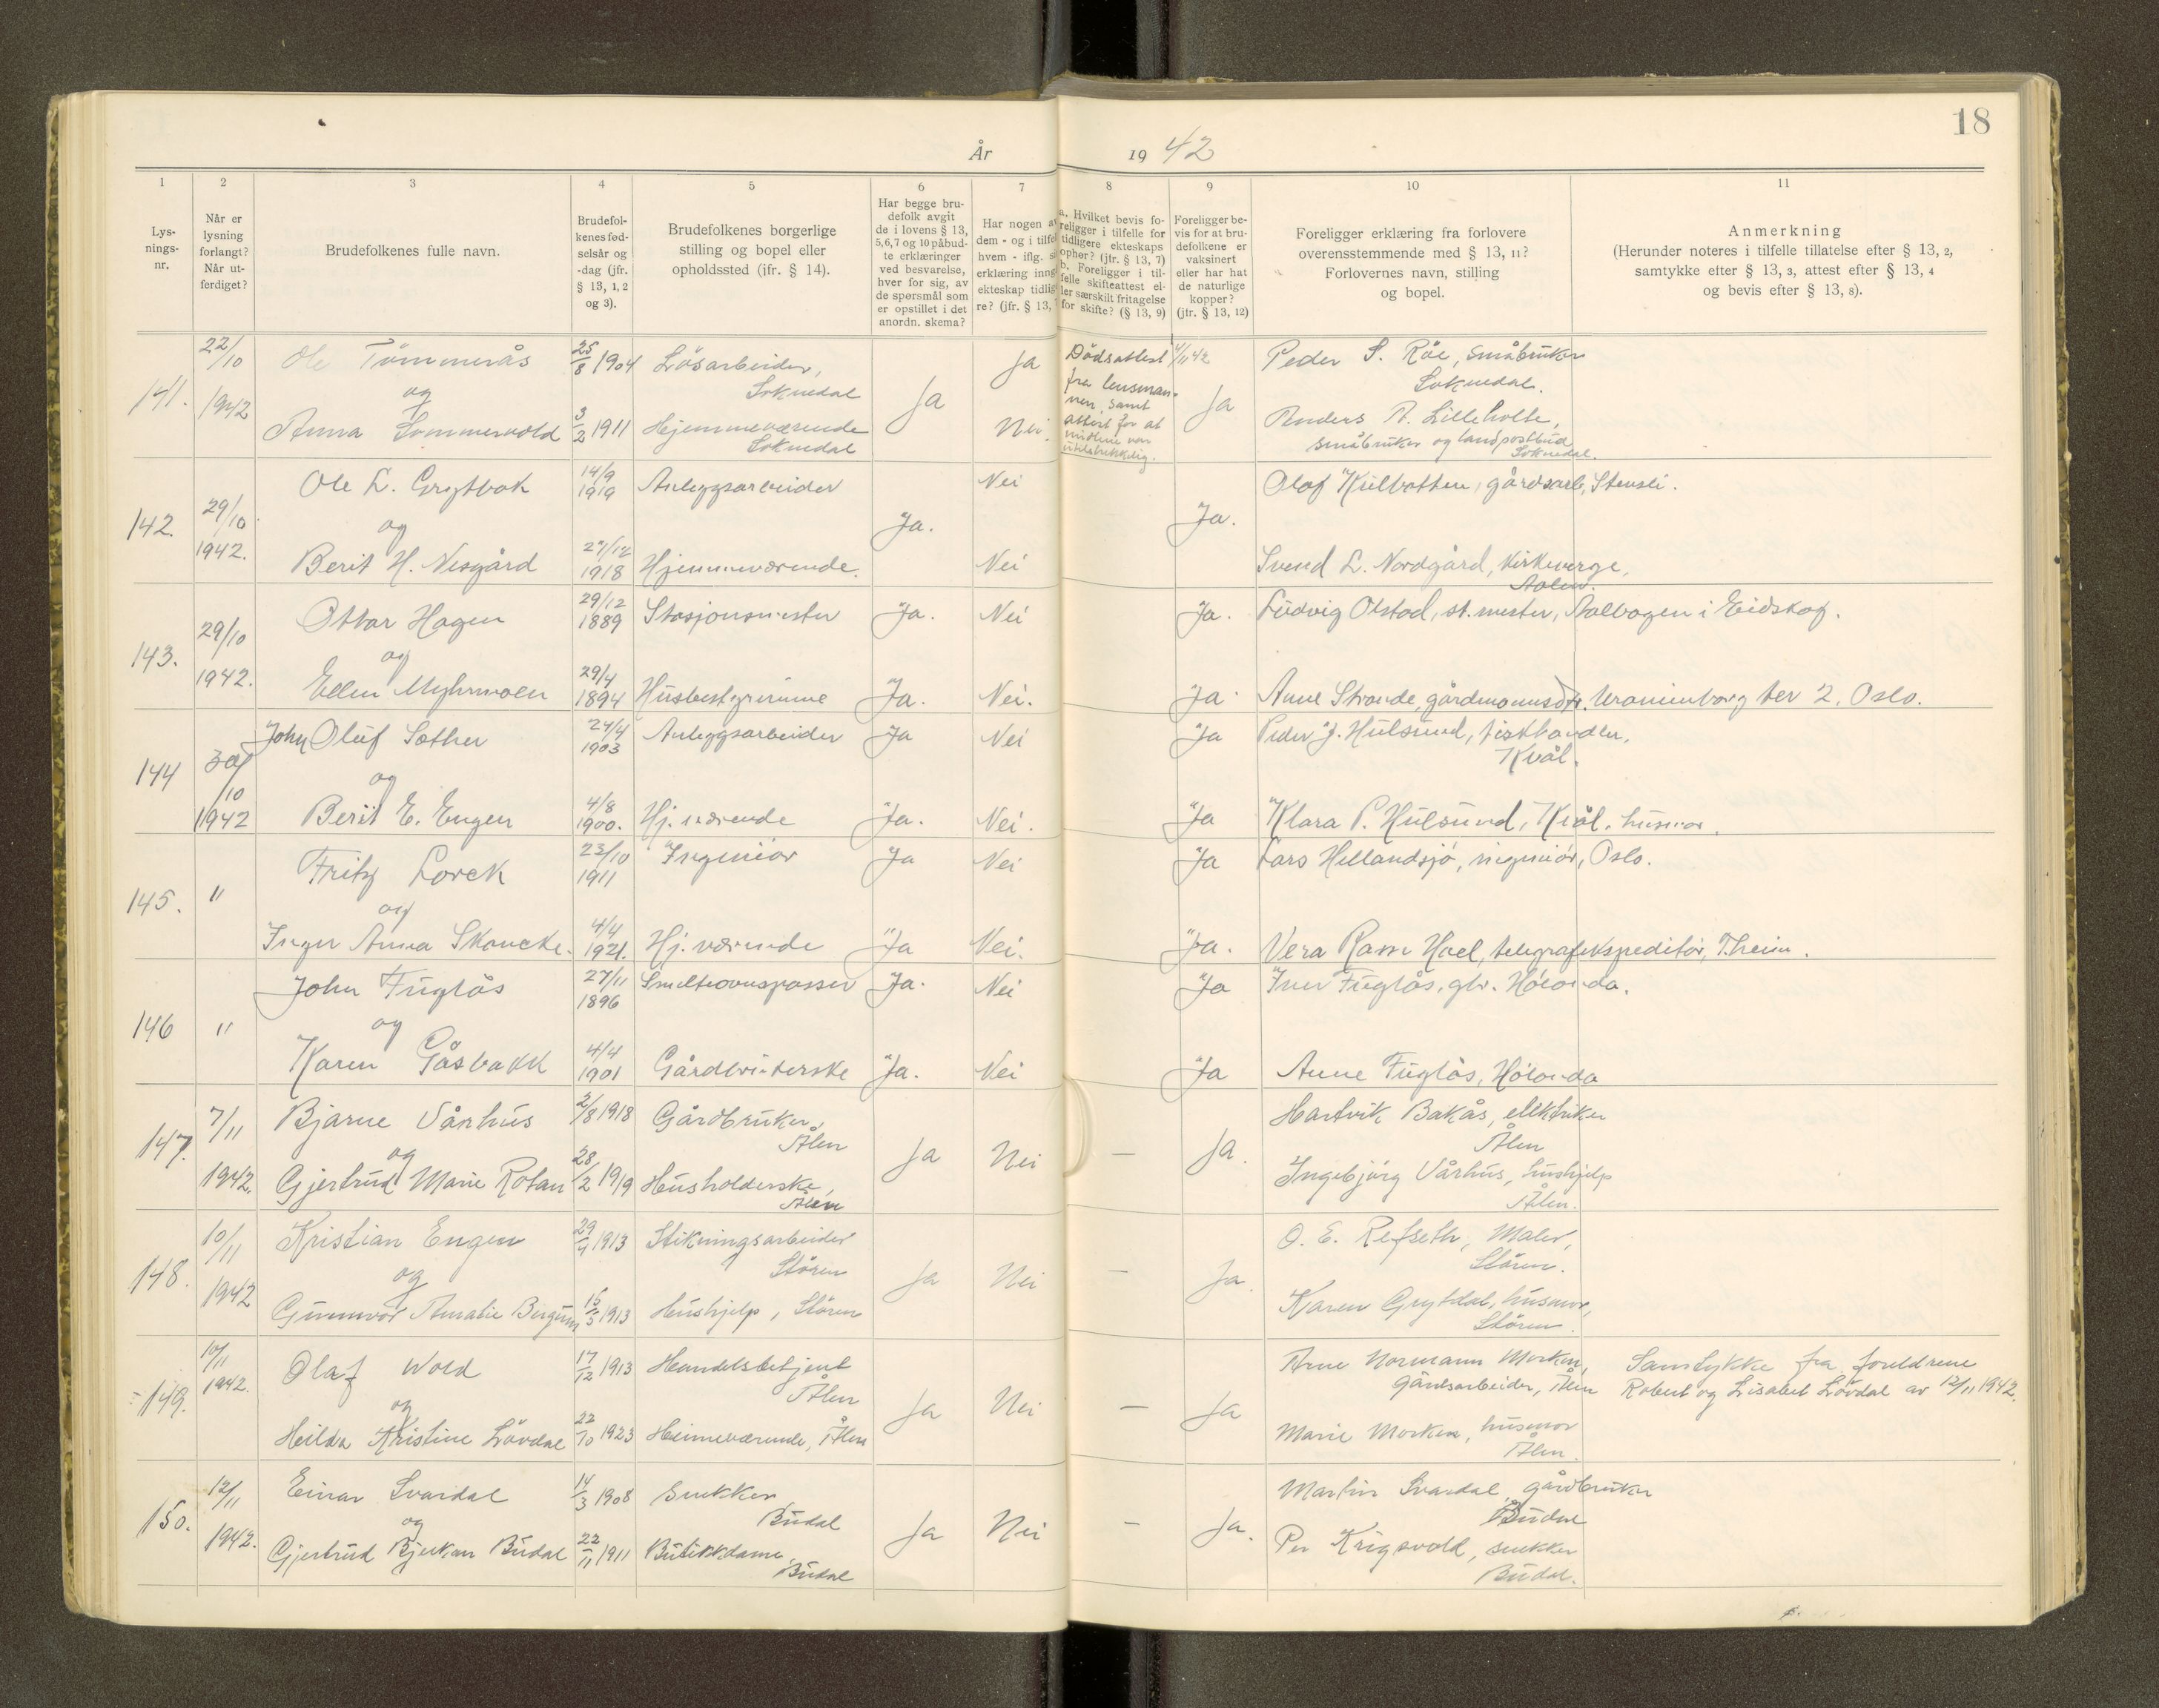 18
År 1942
1 2 3 4 5 6 7 8 9 10 11
Lys-
nings-
nr.
Når er
lysning
forlangt?
Når ut-
ferdiget?
Brudefolkenes fulle navn.
Brudefol-
kenes fød-
selsår og
-dag (jfr.
§ 13, 1, 2
og 3).
Brudefolkenes borgerlige
stilling og bopel eller
opholdssted (jfr. § 14).
Har begge bru-
defolk avgit
de i lovens § 13,
5,6,7 og 10 påbud-
te erklæringer
ved besvarelse,
hver for sig, av
de spørsmål som
er opstillet i det
anordn. skema?
Har nogen av
dem - og i tilfel
hvem - iflg. si
erklæring inng
ekteskap tidlig
re? (jfr. § 13,
a. Hvilket bevis fo-
religger i tilfelle for
tidligere ekteskaps
ophør? (jfr. § 13, 7)
b. Foreligger i til-
felle skifteattest el-
ler særskilt fritagelse
for skifte? (§ 13, 9)
Foreligger be-
vis for at bru-
defolkene er
vaksinert
eller har hat
de naturlige
kopper?
(jfr. § 13, 12)
Foreligger erklæring fra forlovere
overensstemmende med § 13, 11?
Forlovernes navn, stilling
og bopel.
Anmerkning
(Herunder noteres i tilfelle tillatelse efter § 13, 2,
samtykke efter § 13, 3, attest efter § 13, 4
og bevis efter § 13, 8).
141. 22/10 1942
Ole Tømmerås 25/8 1904 Løsarbeider, Soknedal
og
Anna Sommervold 3/2 1911 Hjemmeværende Soknedal
Ja
Ja
Nei.
Dødsattest 4/11 42
fra lensman-
nen, samt
attest for at
midlene var
utilstrekkelig.
Ja
Peder S. Råe, småbruker
Soknedal.
Anders A. Lilleholte,
småbruker og landpostbud
Soknedal.
142. 29/10 1942.
Ole L. Grytbak 14/9 1919 Anleggsarbeider Nei
og Ja. Ja.
Berit H. Nesgård 27/12 1918 Hjemmeværende. Nei
Olaf Kulbotten, gårdsarb, Stensli.
Svend L. Nordgård, kirkeverge,
Aalen.
143. 29/10 1942.
Ottar Hagen 29/12 1889 Stasjonsmester Ja. Nei Ja. Ludvig Olstad, st.mester, Aabogen i Eidskog.
og
Ellen Myhrmoen 29/4 1894 Husbestyrerinne Ja. Nei. Ja. Anne Strande, gårdmannsdtr. Uranienborg ter 2, Oslo.
144 30/10 1942
John Oluf Sæther 24/4 1903 Anleggsarbeider Ja Nei Ja Peder J. Hulsund, fiskhandler,
Kvål.
og
Berit E. Engen 4/8 1900. Hj. værende Ja. Nei. Ja Klara P. Hulsund, Kvål, husmor.
145. "
Fritz Lorck 23/10 1911 Ingeniør Ja Nei Ja Lars Hellandsjø, ingeniør, Oslo.
og
Inger Anna Skancke. 4/4 1921. Hj. værende Ja Nei. Ja. Vera Ramm Hael, telegrafekspeditør, T.heim.
146 "
John Fuglås 27/11 1896 Smelteovnspasser Ja. Nei Ja Iver Fuglås, gbr. Hølonda.
og
Karen Gåsbakk 4/4 1901 Gårdbrukerske Ja. Nei Ja Anne Fuglås, Hølonda
147. 7/11 1942.
Bjarne Vårhus 2/8 1918 Gårdbruker, Ålen
og Ja Nei — Ja.
Gjertrud Marie Rotan 28/2 1919 Husholderske, Ålen
Hartvik Bakås, elektriker
Ålen
Ingebjørg Vårhus, hushjelp
Ålen.
148. 10/11 1942
Kristian Engen 29/4 1913 Stikningsarbeider Støren
og Ja Nei — Ja.
Gunnvor Amalie Bergum 16/5 1913 Hushjelp, Støren
O. E. Refseth, Maler,
Støren.
Karen Grytdal, husmor,
Støren.
149. 10/11 1942.
Olaf Wold 17/12 1913 Handelsbetjent Ålen
og Ja Nei — Ja
Heilda Kristine Løvdal 22/10 1923 Heimeværende, Ålen
Arne Normann Morken,
gårdsarbeider, Ålen
Marie Morken, husmor
Ålen.
Samtykke fra foreldrene
Robert og Lisabet Løvdal av 12/11 1942.
150. 12/11 1942.
Einar Svardal 14/3 1908 Snekker Budal
og Ja Nei — Ja.
Gjertrud Bjerkan Budal 22/11 1911 Butikkdame, Budal
Martin Svardal, gårdbruker
Budal
Per Krigsvold, snekker
Budal.